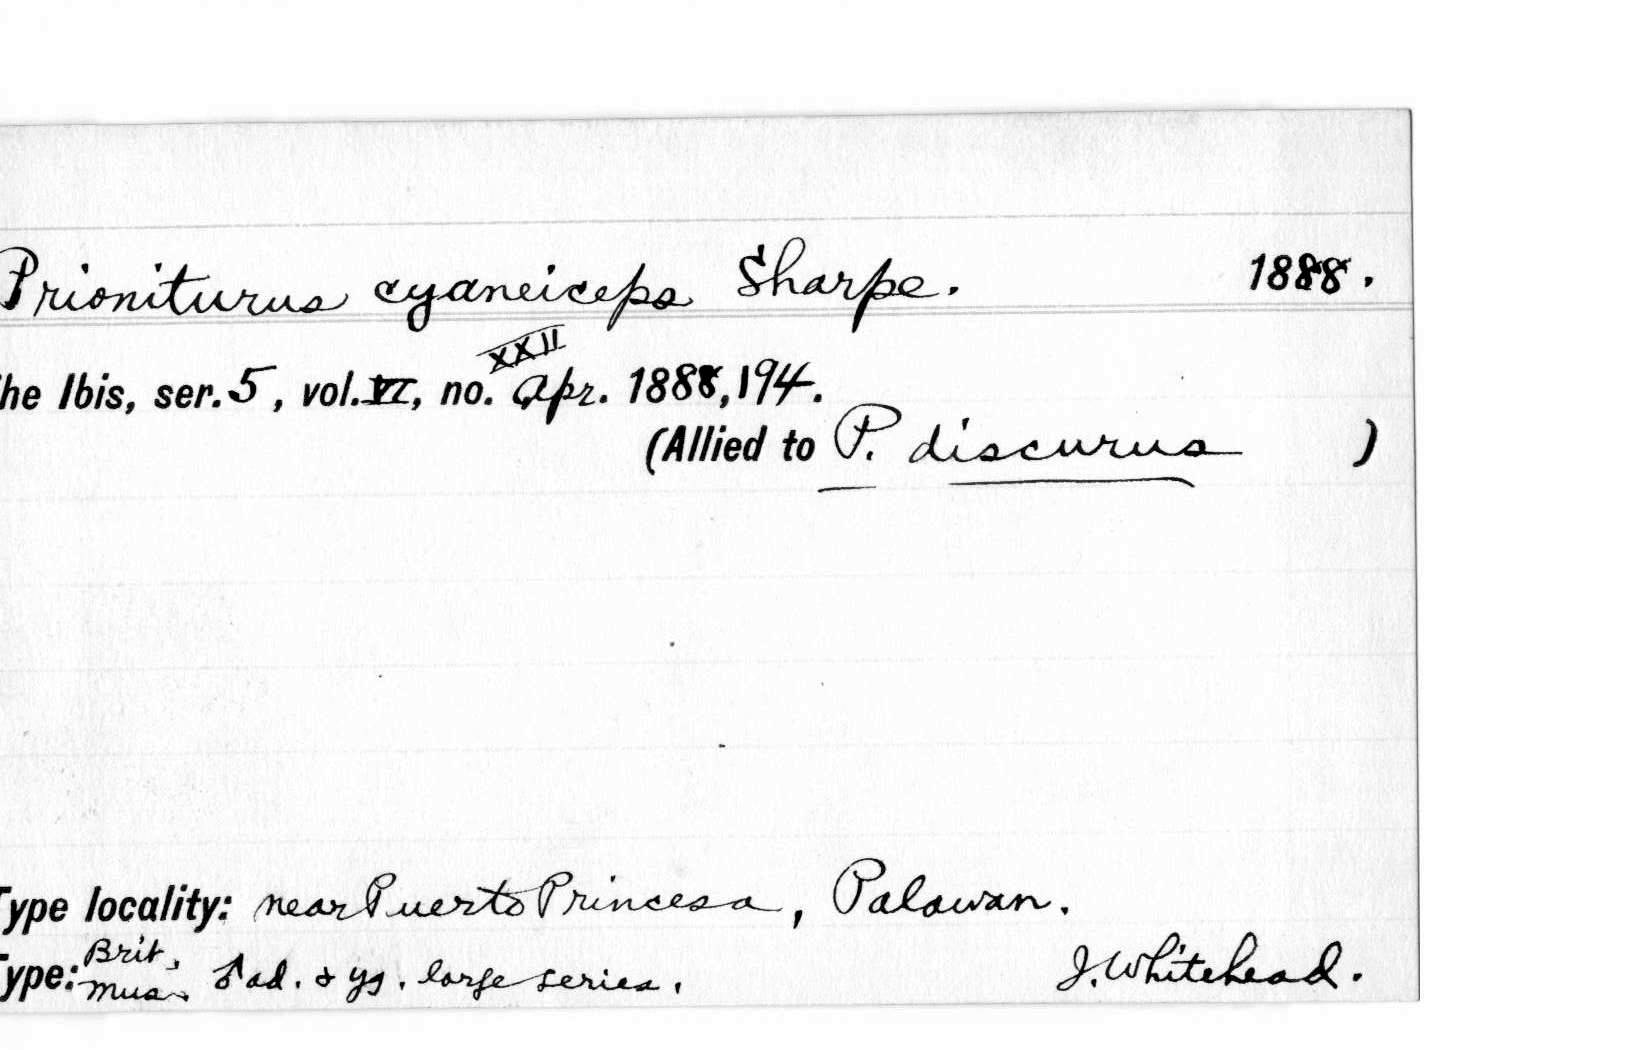 Prioniturus cyaneiceps Sharpe. 1888.
he Ibis, ser. 5, vol. VI, no. XXII Apr. 1888, 194.
(Allied to P. discurus )
Type locality: near Puerto Princesa, Palawan.
Type: Brit. Mus. ♂ ad. & yg. large series. J. Whitehead.